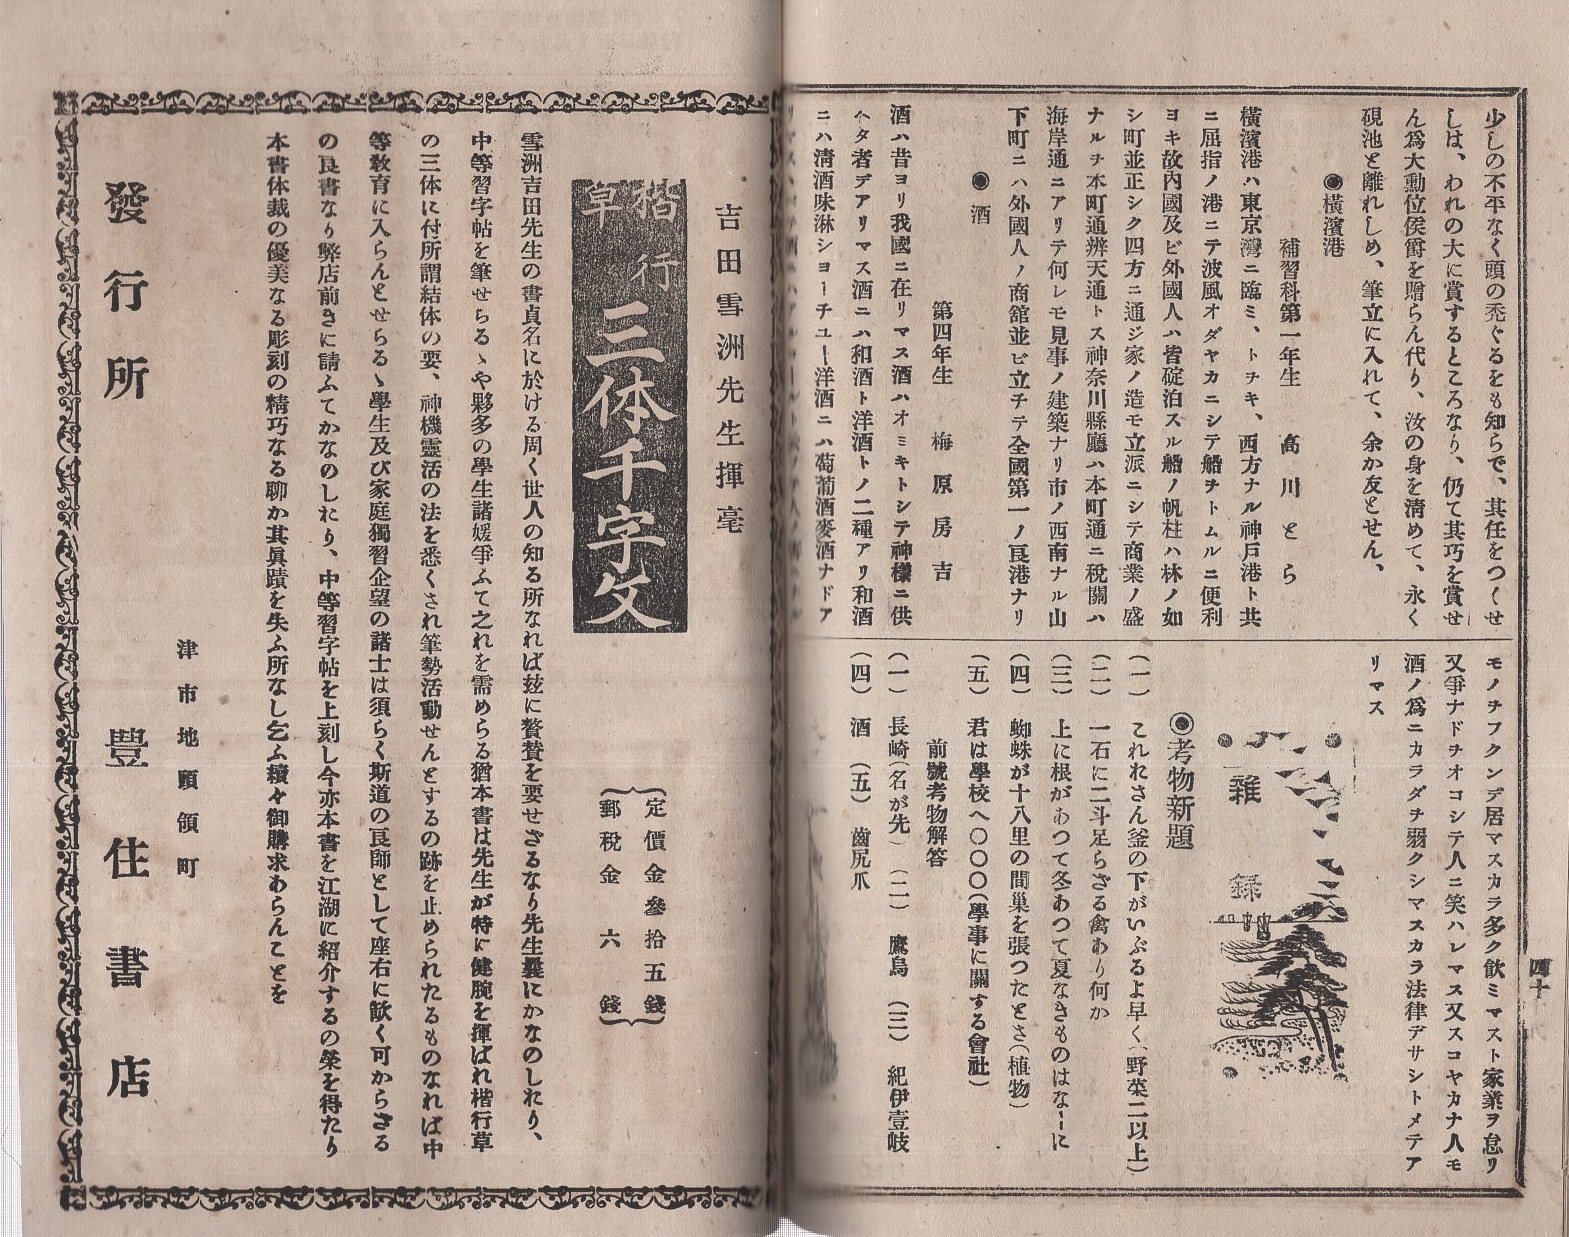 少しの不平なく頭の禿ぐるをも知らで、其任をつくせ
しは、われの大に賞するところなり、仍て其巧を賞せ
ん爲大勳位侯爵を贈らん代り、汝の身を清めて、永く
硯池と離れしめ、筆立に入れて、余か友とせん、
◉橫濱港
補習科第一年生 高川とら
橫濱港ハ東京灣ニ臨ミ、トチキ、西方ナル神戸港ト共
ニ屈指ノ港ニテ波風オダヤカニシテ船ヲトムルニ便利
ヨキ故內國及ビ外國人ハ皆碇泊スル船ノ帆柱ハ林ノ如
シ町並正シク四方ニ通ジ家ノ造モ立派ニシテ商業ノ盛
ナルヲ本町通辨天通トス神奈川縣廳ハ本町通ニ稅關ハ
海岸通ニアリテ何レモ見事ノ建築ナリ市ノ西南ナル山
下町ニハ外國人ノ商舘並ビ立チテ全國第一ノ良港ナリ
◉酒
第四年生 梅原房吉
酒ハ昔ヨリ我國ニ在リマス酒ハオミキトシテ神樣ニ供
ヘタ者デアリマス酒ニハ和酒ト洋酒トノ二種アリ和酒
ニハ淸酒味淋シヨーチユー洋酒ニハ萄葡酒麥酒ナドア
モノヲフクンデ居マスカラ多ク飮ミマスト家業ヲ怠リ
又爭ナドヲオコシテ人ニ笑ハレマス又スコヤカナ人モ
酒ノ爲ニカラダヲ弱クシマスカラ法律デサシトメテア
リマス
雜錄
◉考物新題
(一) これれさん釜の下がいぶるよ早く(野菜二以上)
(二) 一石に二斗足らざる禽あり何か
(三) 上に根があつて冬あつて夏なきものはなーに
(四) 蜘蛛が十八里の間巢を張つたとさ(植物)
(五) 君は學校へ〇〇〇(學事に關する會社)
前號考物解答
(一) 長崎(名が先) (二) 鷹鳥 (三) 紀伊壹岐
(四) 酒 (五) 齒尻爪
四十
吉田雪洲先生揮毫
楷行草 三体千字文
定價金參拾五錢
郵稅金六錢
雪洲吉田先生の書貞名に於ける周く世人の知る所なれば玆に贅賛を要せざるなり先生曩にかなのしをり、
中等習字帖を筆せらるゝや夥多の學生諸媛爭ふて之れを需めらる猶本書は先生が特に健腕を揮はれ楷行草
の三体に付所謂結体の要、神機靈活の法を悉くされ筆勢活動せんとするの跡を止められたるものなれば中
等敎育に入らんとせらるゝ學生及び家庭獨習企望の諸士は須らく斯道の良師として座右に歓く可からさる
の良書なり弊店前きに請ふてかなのしをり、中等習字帖を上刻し今亦本書を江湖に紹介するの榮を得たり
本書体裁の優美なる彫刻の精巧なる聊か其眞蹟を失ふ所なし乞ふ續々御購求あらんことを
津市地頭領町
發行所 豊住書店